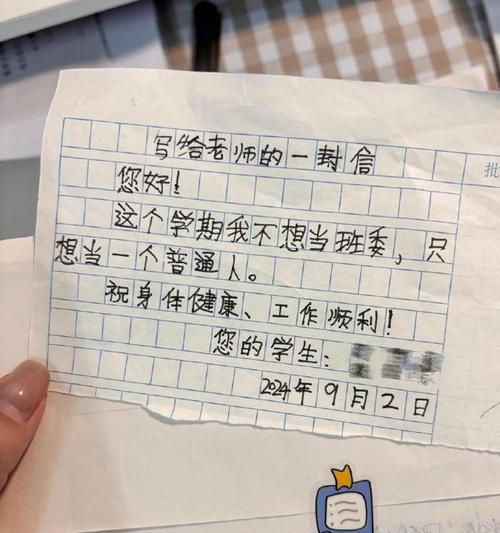 写给老师的一封信
您好!
这个学期我不想当班委,只
想当一个普通人。
祝身体健康、工作顺利!
您的学生:
2024年9月2日
批